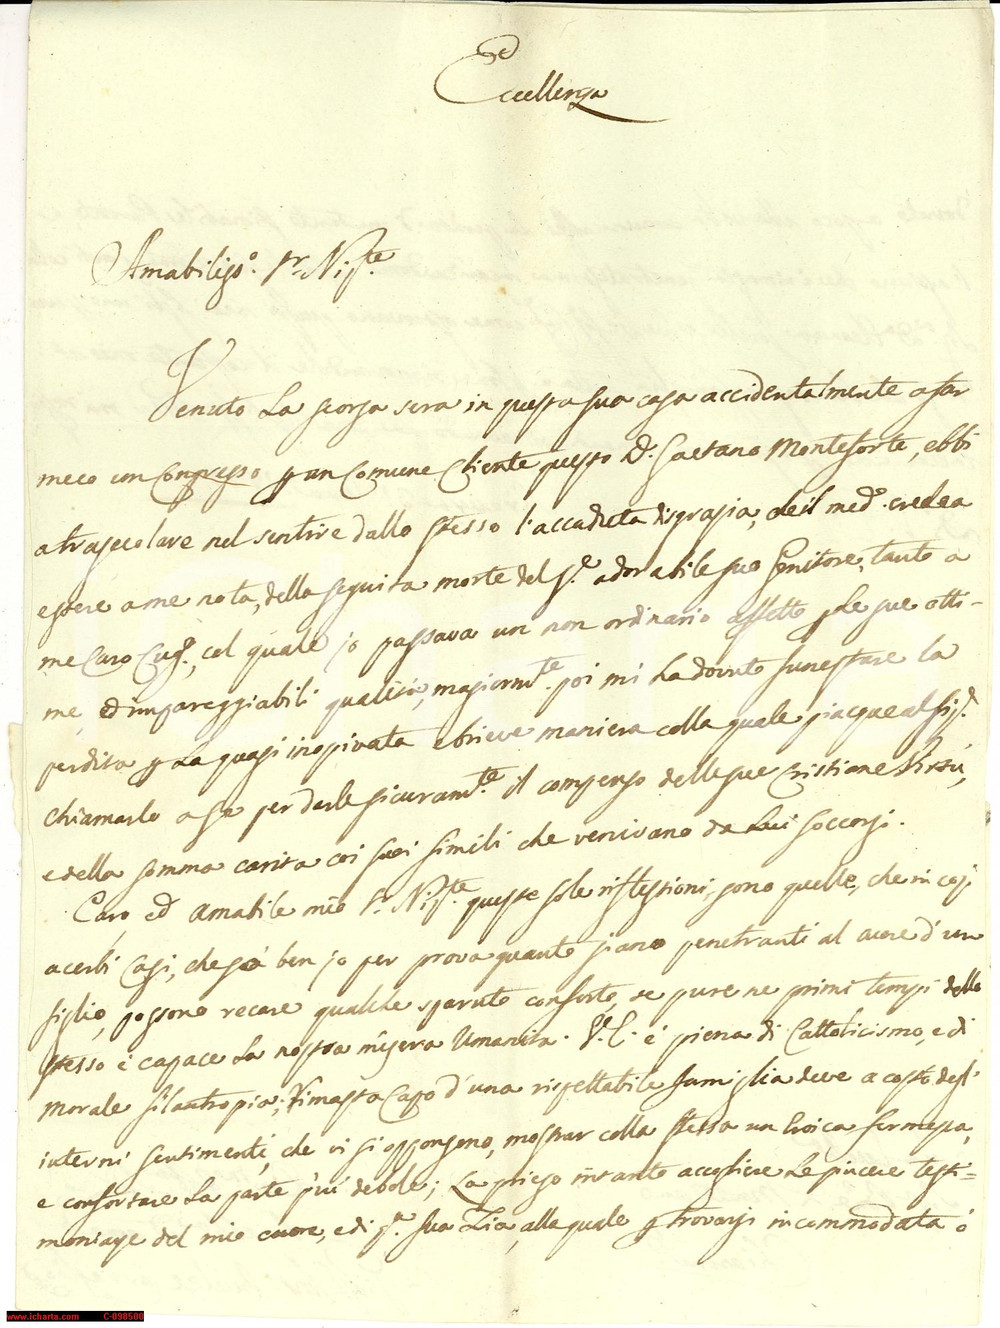 Eccellenza
Amabiligo. Sr. Nip.te
Venuto la scorsa sera in questa sua casa accidentalmente a far
meco un Congresso p un Comune Cliente questo D. Gaetano Monteforte, ebbi
a trasecolare nel sentire dallo stesso l'accaduta disgrazia, che il med.o credea
essere a me nota, della seguita morte del Sr. adorabile suo Genitore, tanto a
me Caro Cug.o, col quale io passava un non ordinario affetto p le sue otti-
me, ed impareggiabili qualità, magiorm.te poi mi ha dovuto funestare la
perdita p la quasi inopinata e brieve maniera colla quale piacque al Sig.r
chiamarlo a se per darle sicuram.te il compenso delle sue Cristiane Virtù,
e della somma carità coi suoi simili che venivano da Lui soccorsi.
Caro, ed amabile mio Sr. Nip.te queste sole riflessioni, sono quelle, che in così
acerbi casi, che sò ben io per prova quanto siano penetranti al cuore d'un
figlio, possono recare qualche sparuto conforto, se pure ne primi tempi dello
stesso è capace la nostra misera Umanità. V. E. è piena di Cattolicismo, e di
morale filantropia; rimasta Capo d'una rispettabile famiglia deve a costo degl'
interni sentimenti, che vi si oppongono, mostrar colla stessa un Eroica fermezza,
e confortare la parte più debole; La priego intanto accogliere le sincere testi=
monianze del mio cuore, e di q.ta sua Zia, alla quale p trovarsi incommodata ò
www.icharta.com C-098500